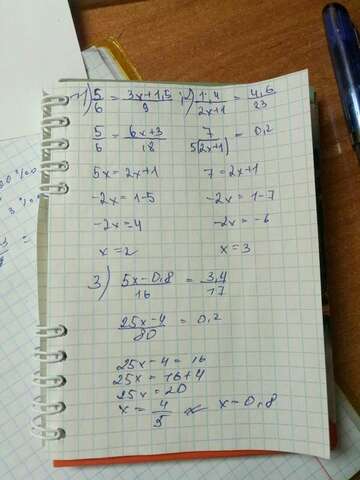 1) 5/6 = 3x+1,5/9 ; 2) 1,4/2x+1 = 4,6/23
5/6 = 6x+3/18 7/5(2x+1) = 0,2
5x = 2x+1 7 = 2x+1
-2x = 1-5 -2x = 1-7
-2x = -4 -2x = -6
x = 2 x = 3
3) 5x-0,8/16 = 3,4/17
25x-4/80 = 0,2
25x-4 = 16
25x = 16+4
25x = 20
x = 4/5 x = 0,8